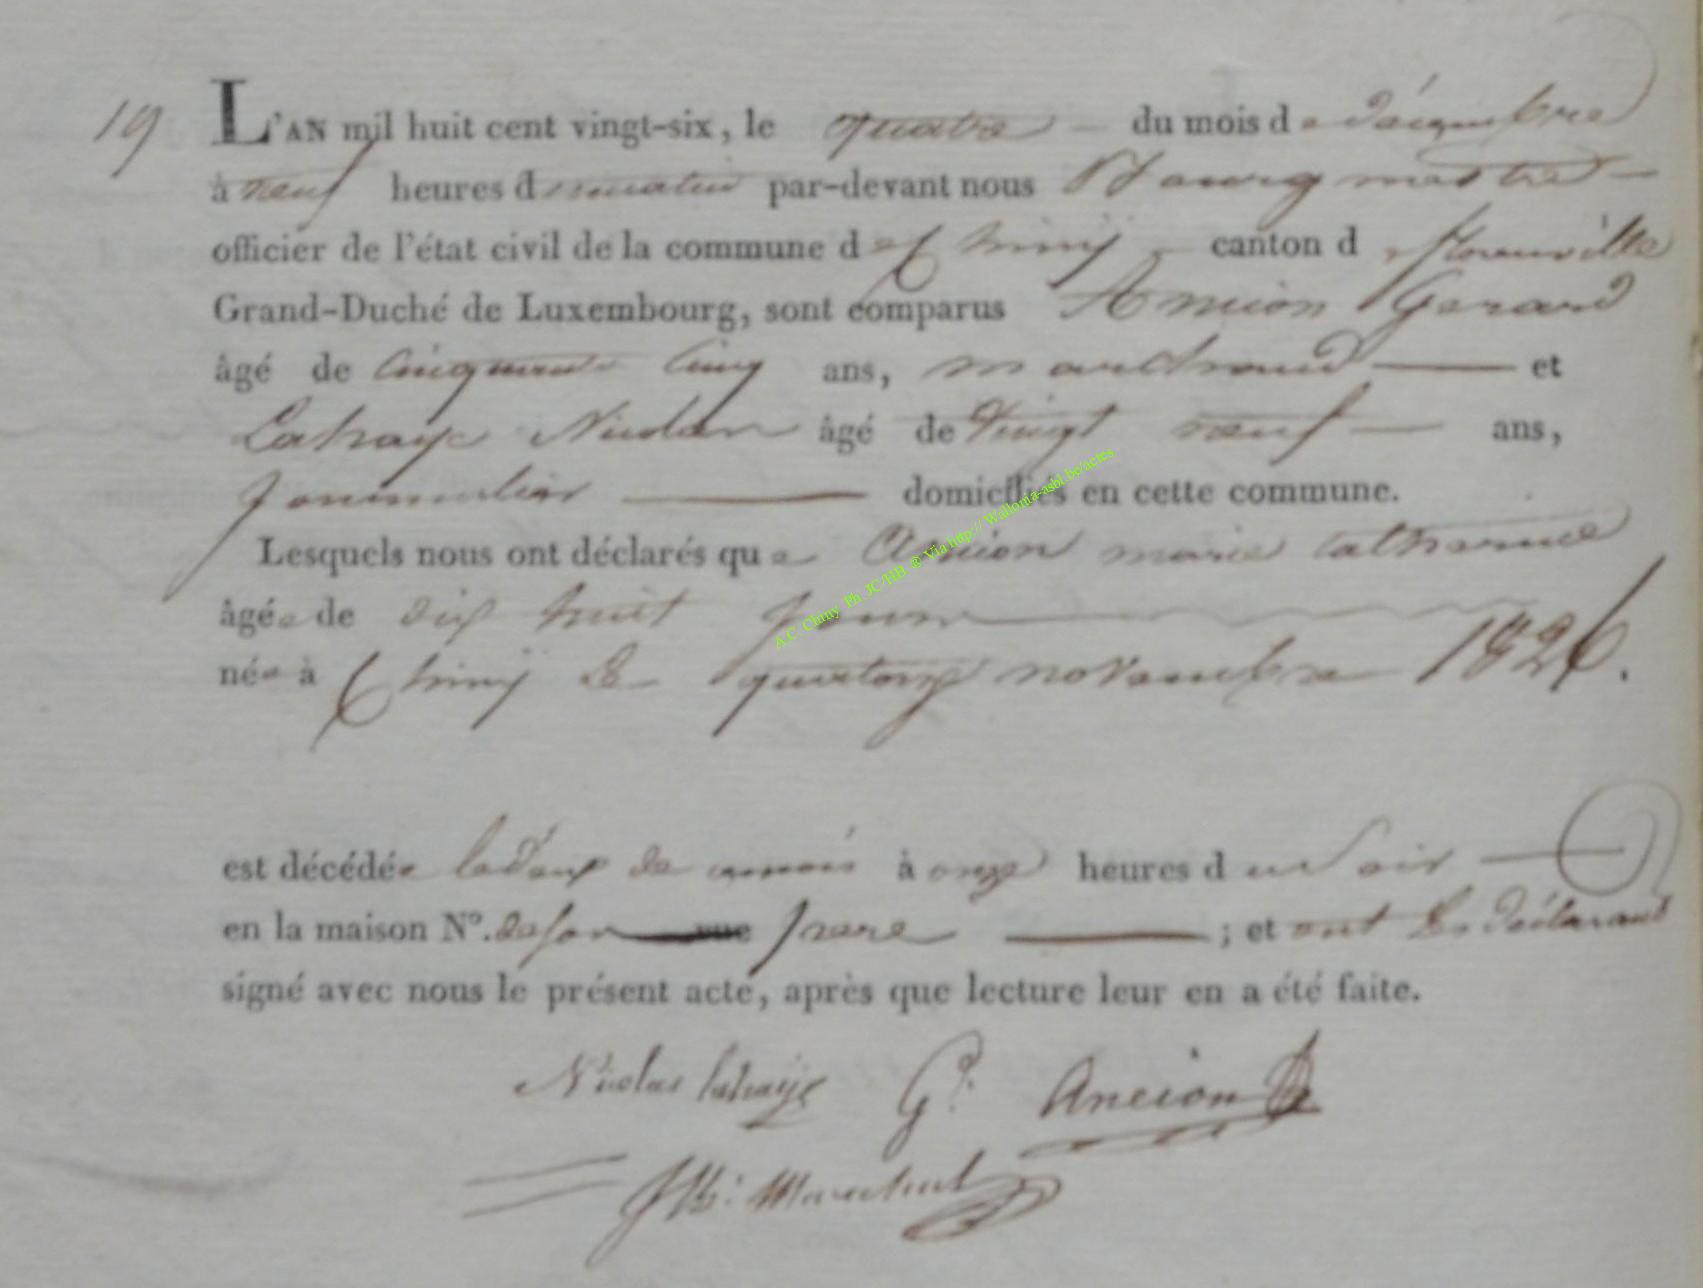 19 L'AN mil huit cent vingt-six, le quatre du mois de décembre
à neuf heures du matin par-devant nous Bourgmestre
officier de l'état civil de la commune de Chiny canton de florenville
Grand-Duché de Luxembourg, sont comparus Ancion Gerard
âgé de cinquante cinq ans, marchand et
Lahaye Nicolas âgé de vingt neuf ans,
journalier domiciliés en cette commune.
Lesquels nous ont déclarés que Ancion marie catherine
âgée de dix huit jours
née à Chiny le quatorze novembre 1826.
est décédée le deux de ce mois à onze heures du soir
en la maison N°. de son rue frere ; et ont les déclarants
signé avec nous le présent acte, après que lecture leur en a été faite.
Nicolas lahaye Gd. Ancion
Marechal
A.C. Chiny Ph JC/HB @ Via http://Wallonia-asbl.be/actes